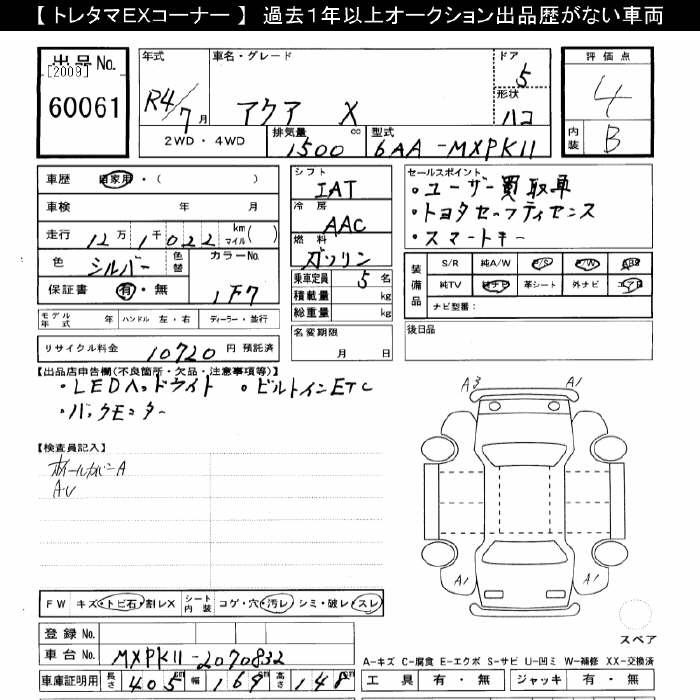 【 トレタマEXコーナー 】 過去1年以上オークション出品歴がない車両
出品 No.
[2009]
60061
年式 車名・グレード ドア 5
R4/7月 アクア X 形状 ハコ
2WD・4WD 排気量 1500 cc 型式 6AA-MXPK11
評価点
4
内装 B
車歴 自家用・( )
車検 年 月
走行 12万1千022 km マイル( )
色 シルバー 色替 カラーNo.
保証書 有・無 1F7
モデル年式 年 ハンドル 左・右 ディーラー・並行
リサイクル料金 10720 円 預託済
シフト IAT
冷房 AAC
燃料 ガソリン
乗車定員 5 名
積載量 kg
総重量 kg
名変期限
月 日
セールスポイント
・ユーザー買取車
・トヨタセーフティセンス
・スマートキー
装備品 S/R 純A/W P/S P/W ABS
純TV 純ナビ 革シート 外ナビ エアB
ナビ型番:
後日品
【出品店申告欄(不良箇所・欠品・注意事項等)】
・LEDヘッドライト ・ビルトインETC
・バックモニター
【検査員記入】
ホイールカバーA
AU
A3 A1
A1 A1
スペア
FW キズ・トビ石・割レX シート内装 コゲ・穴・汚レ・シミ・破レ・スレ
登録 No.
車台 No. MXPK11-2070832
車庫証明用 長さ 405cm 幅 169cm 高さ 148cm
A-キズ C-腐食 E-エクボ S-サビ U-凹ミ W-補修 XX-交換済
工具 有・無 ジャッキ 有・無